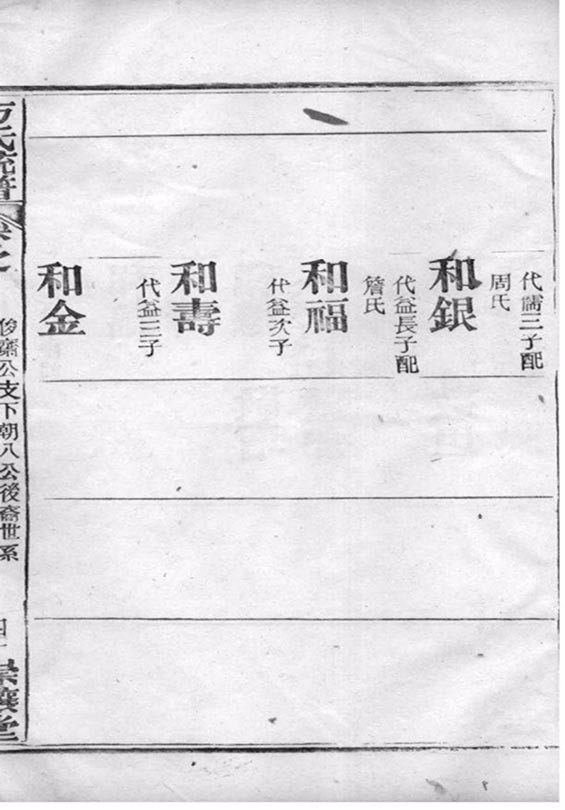 二子配
周氏
和銀
代益長子配
詹氏
和福
代益次子
和壽
代益三子
和金
方氏統譜
卷之
俊齋公支下朝八公後裔世系
崇讓堂